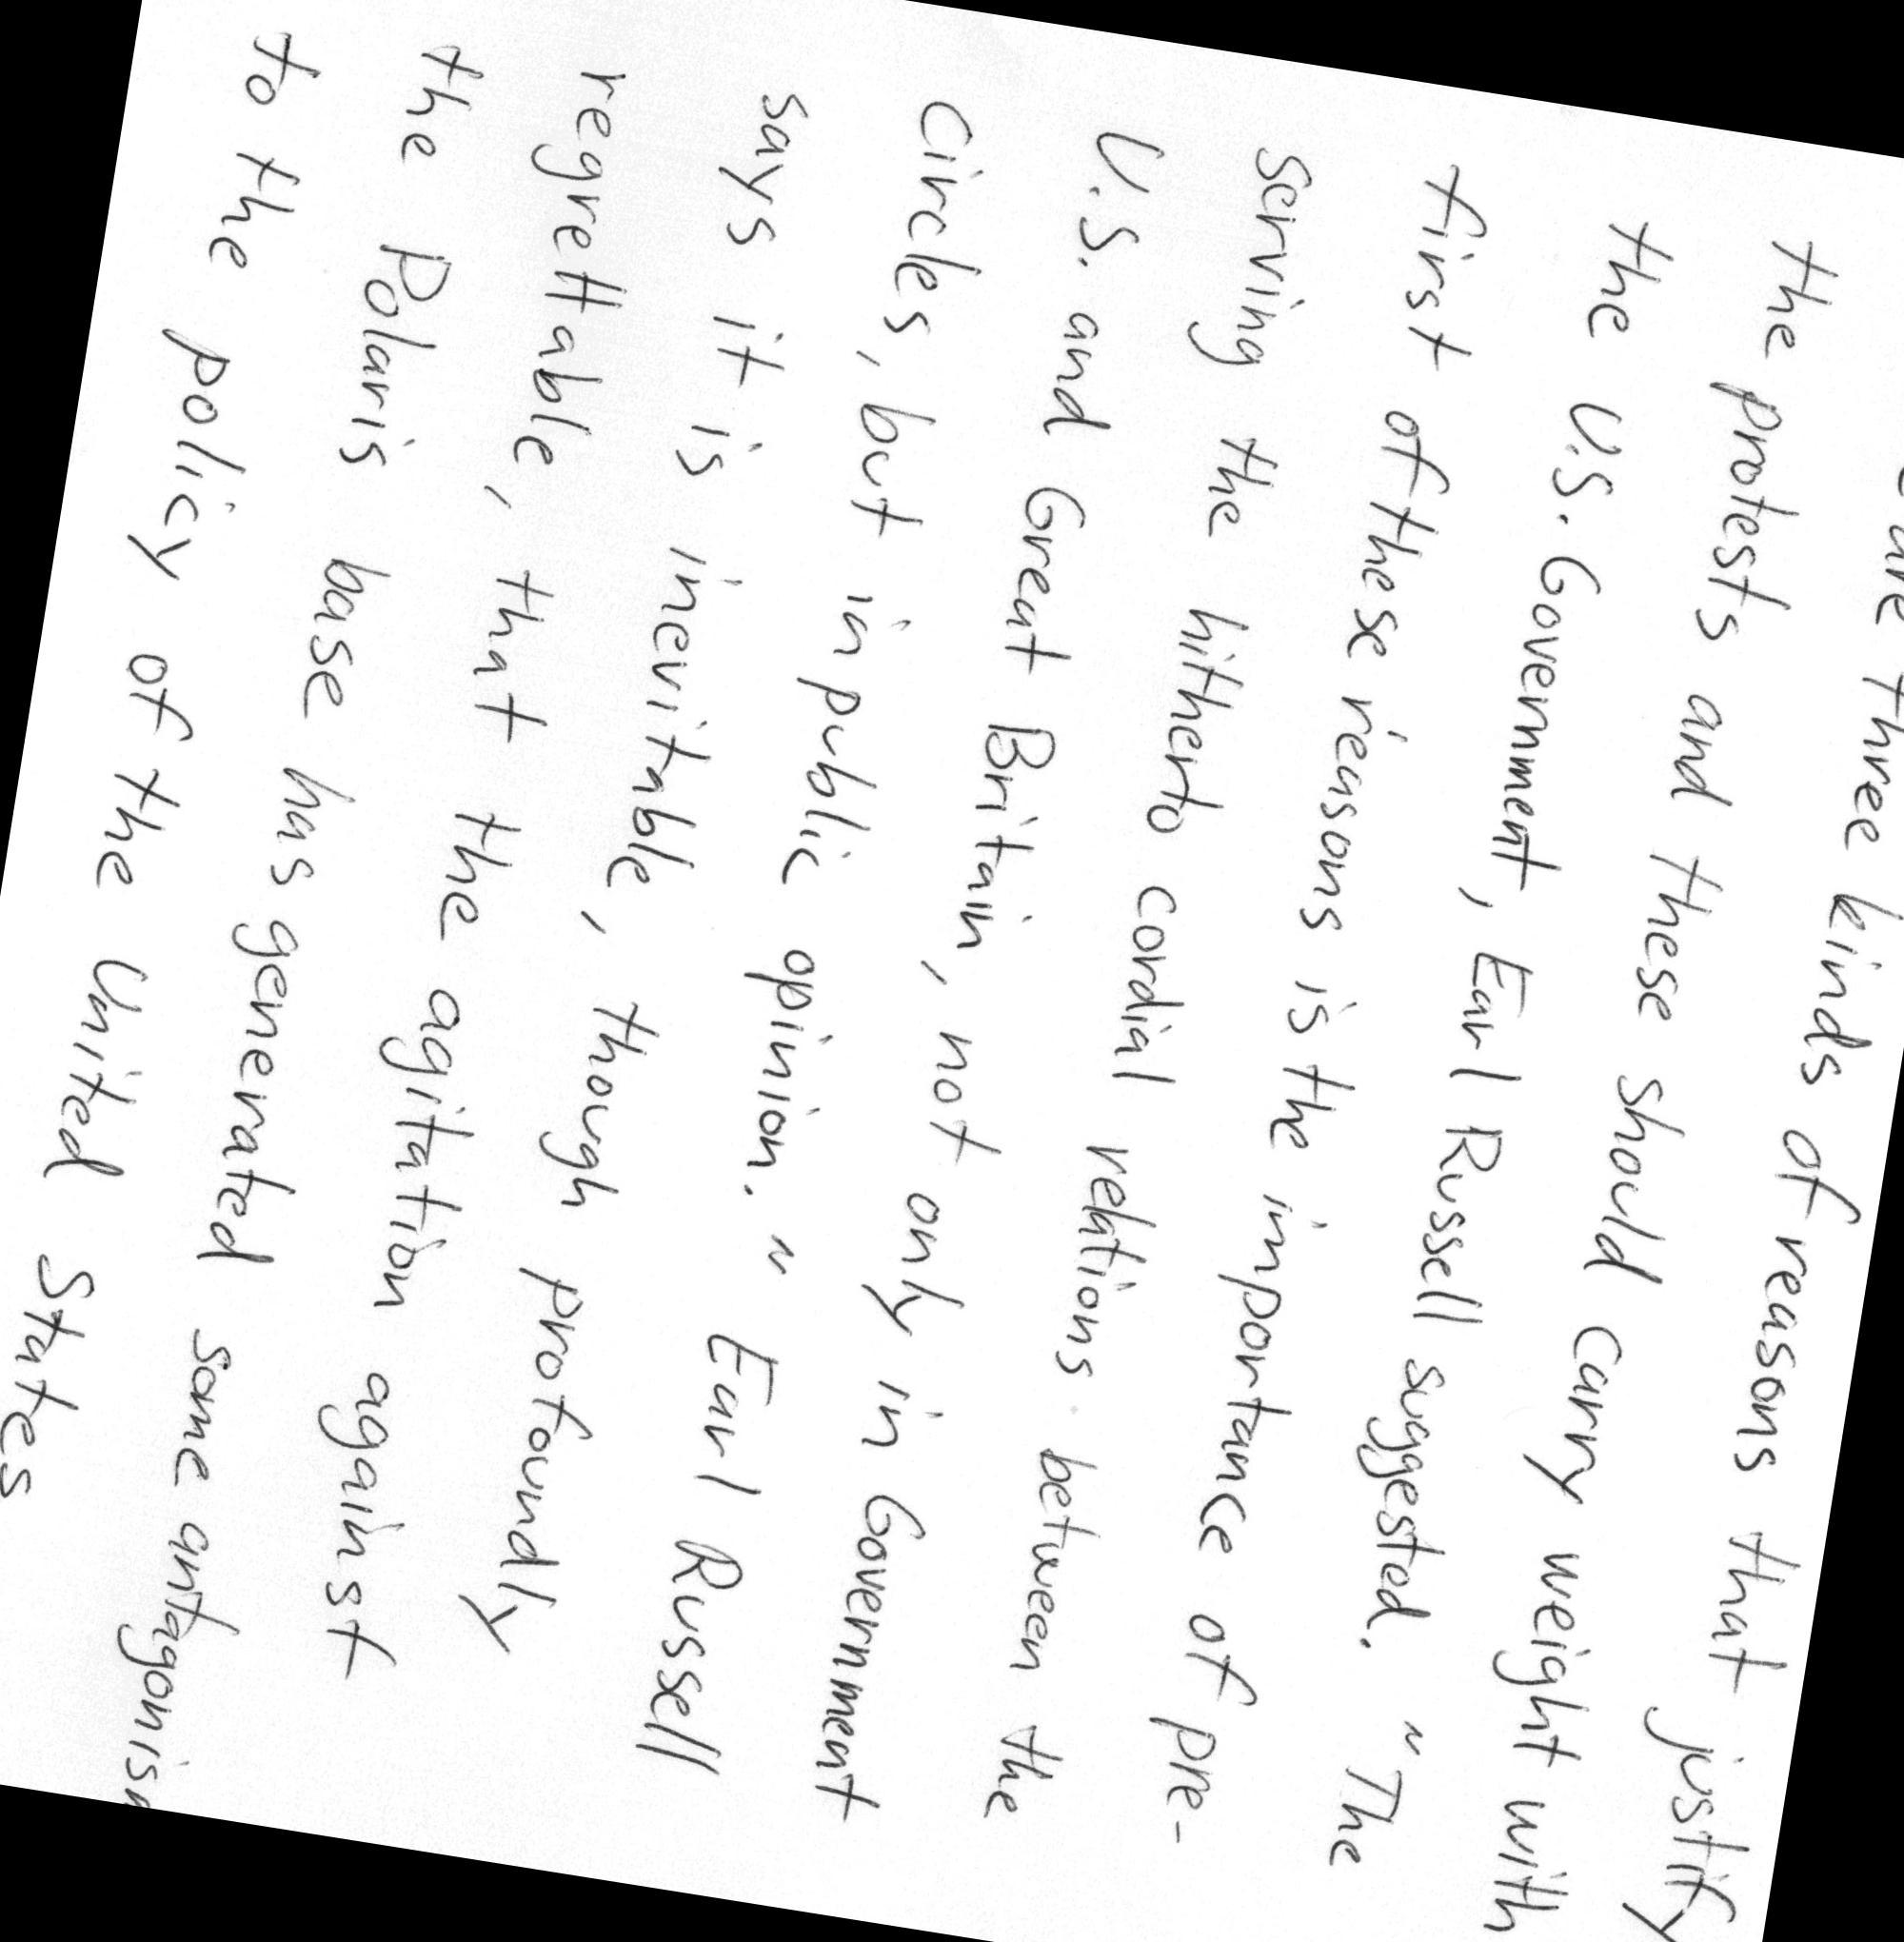 three kinds of reasons that justify
the protests and these should carry weight with
the U.S. Government, Earl Russell suggested. "The
first of these reasons is the importance of pre-
serving the hitherto cordial relations between the
U.S. and Great Britain, not only in Government
circles, but in public opinion." Earl Russell
says it is inevitable, though profoundly
regrettable, that the agitation against
the Polaris base has generated some antagonism
to the policy of the United States